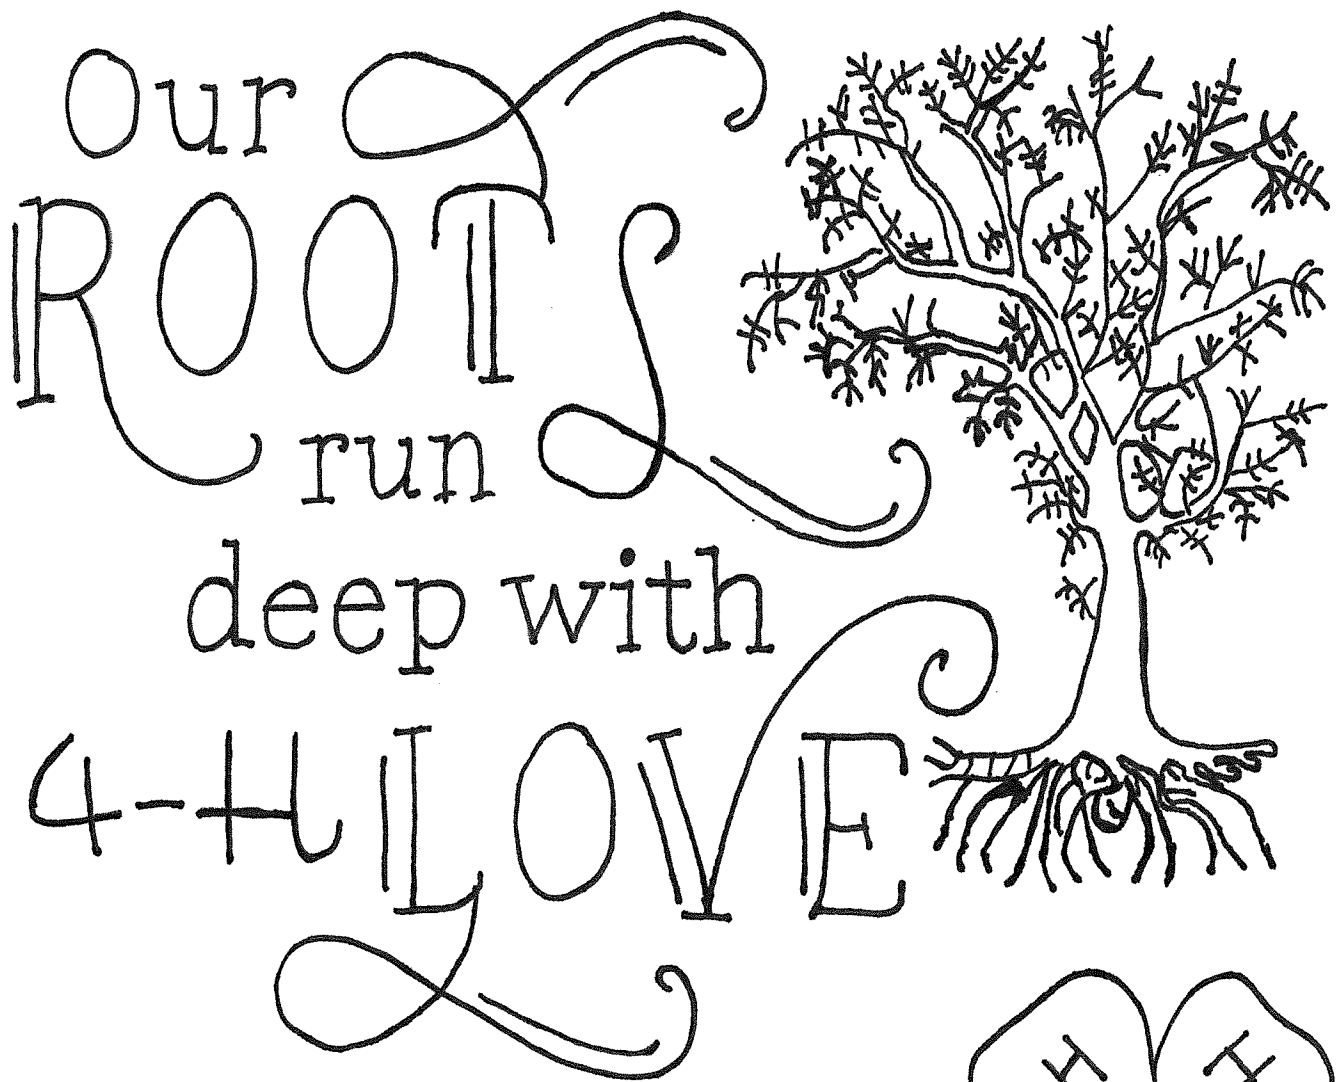 Our
ROOTS
run
deep with
4-H LOVE
H H